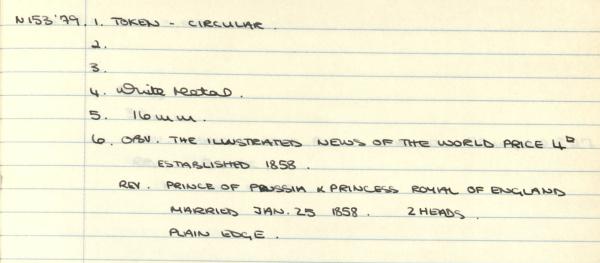 N153'79. 1. TOKEN - CIRCULAR.
2.
3.
4. White Metal.
5. 16 mm.
6. OBV. THE ILLUSTRATED NEWS OF THE WORLD PRICE 4D
ESTABLISHED 1858.
REV. PRINCE OF PRUSSIA & PRINCESS ROYAL OF ENGLAND
MARRIED JAN. 25 1858. 2 HEADS.
PLAIN EDGE.